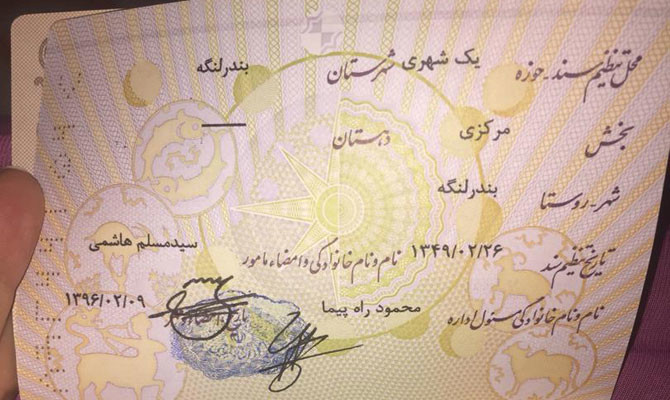 محل تنظیم سند - حوزه یک شهری شهرستان بندرلنگه
بخش مرکزی دهستان ـــــ
شهر - روستا بندرلنگه
تاریخ تنظیم سند ۱۳۴۹/۰۲/۲۶ نام و نام خانوادگی و امضاء مامور سیدمسلم هاشمی
نام و نام خانوادگی مسئول اداره محمود راه پیما ۱۳۹۶/۰۲/۰۹